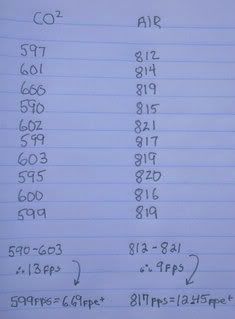 CO² AIR
597 812
601 814
600 819
590 815
602 821
599 817
603 819
595 820
600 816
599 819
590-603 812-821
∴ 13fps ∴ 9fps
599fps=6.69fpe+ 817fps=12.45fpe+